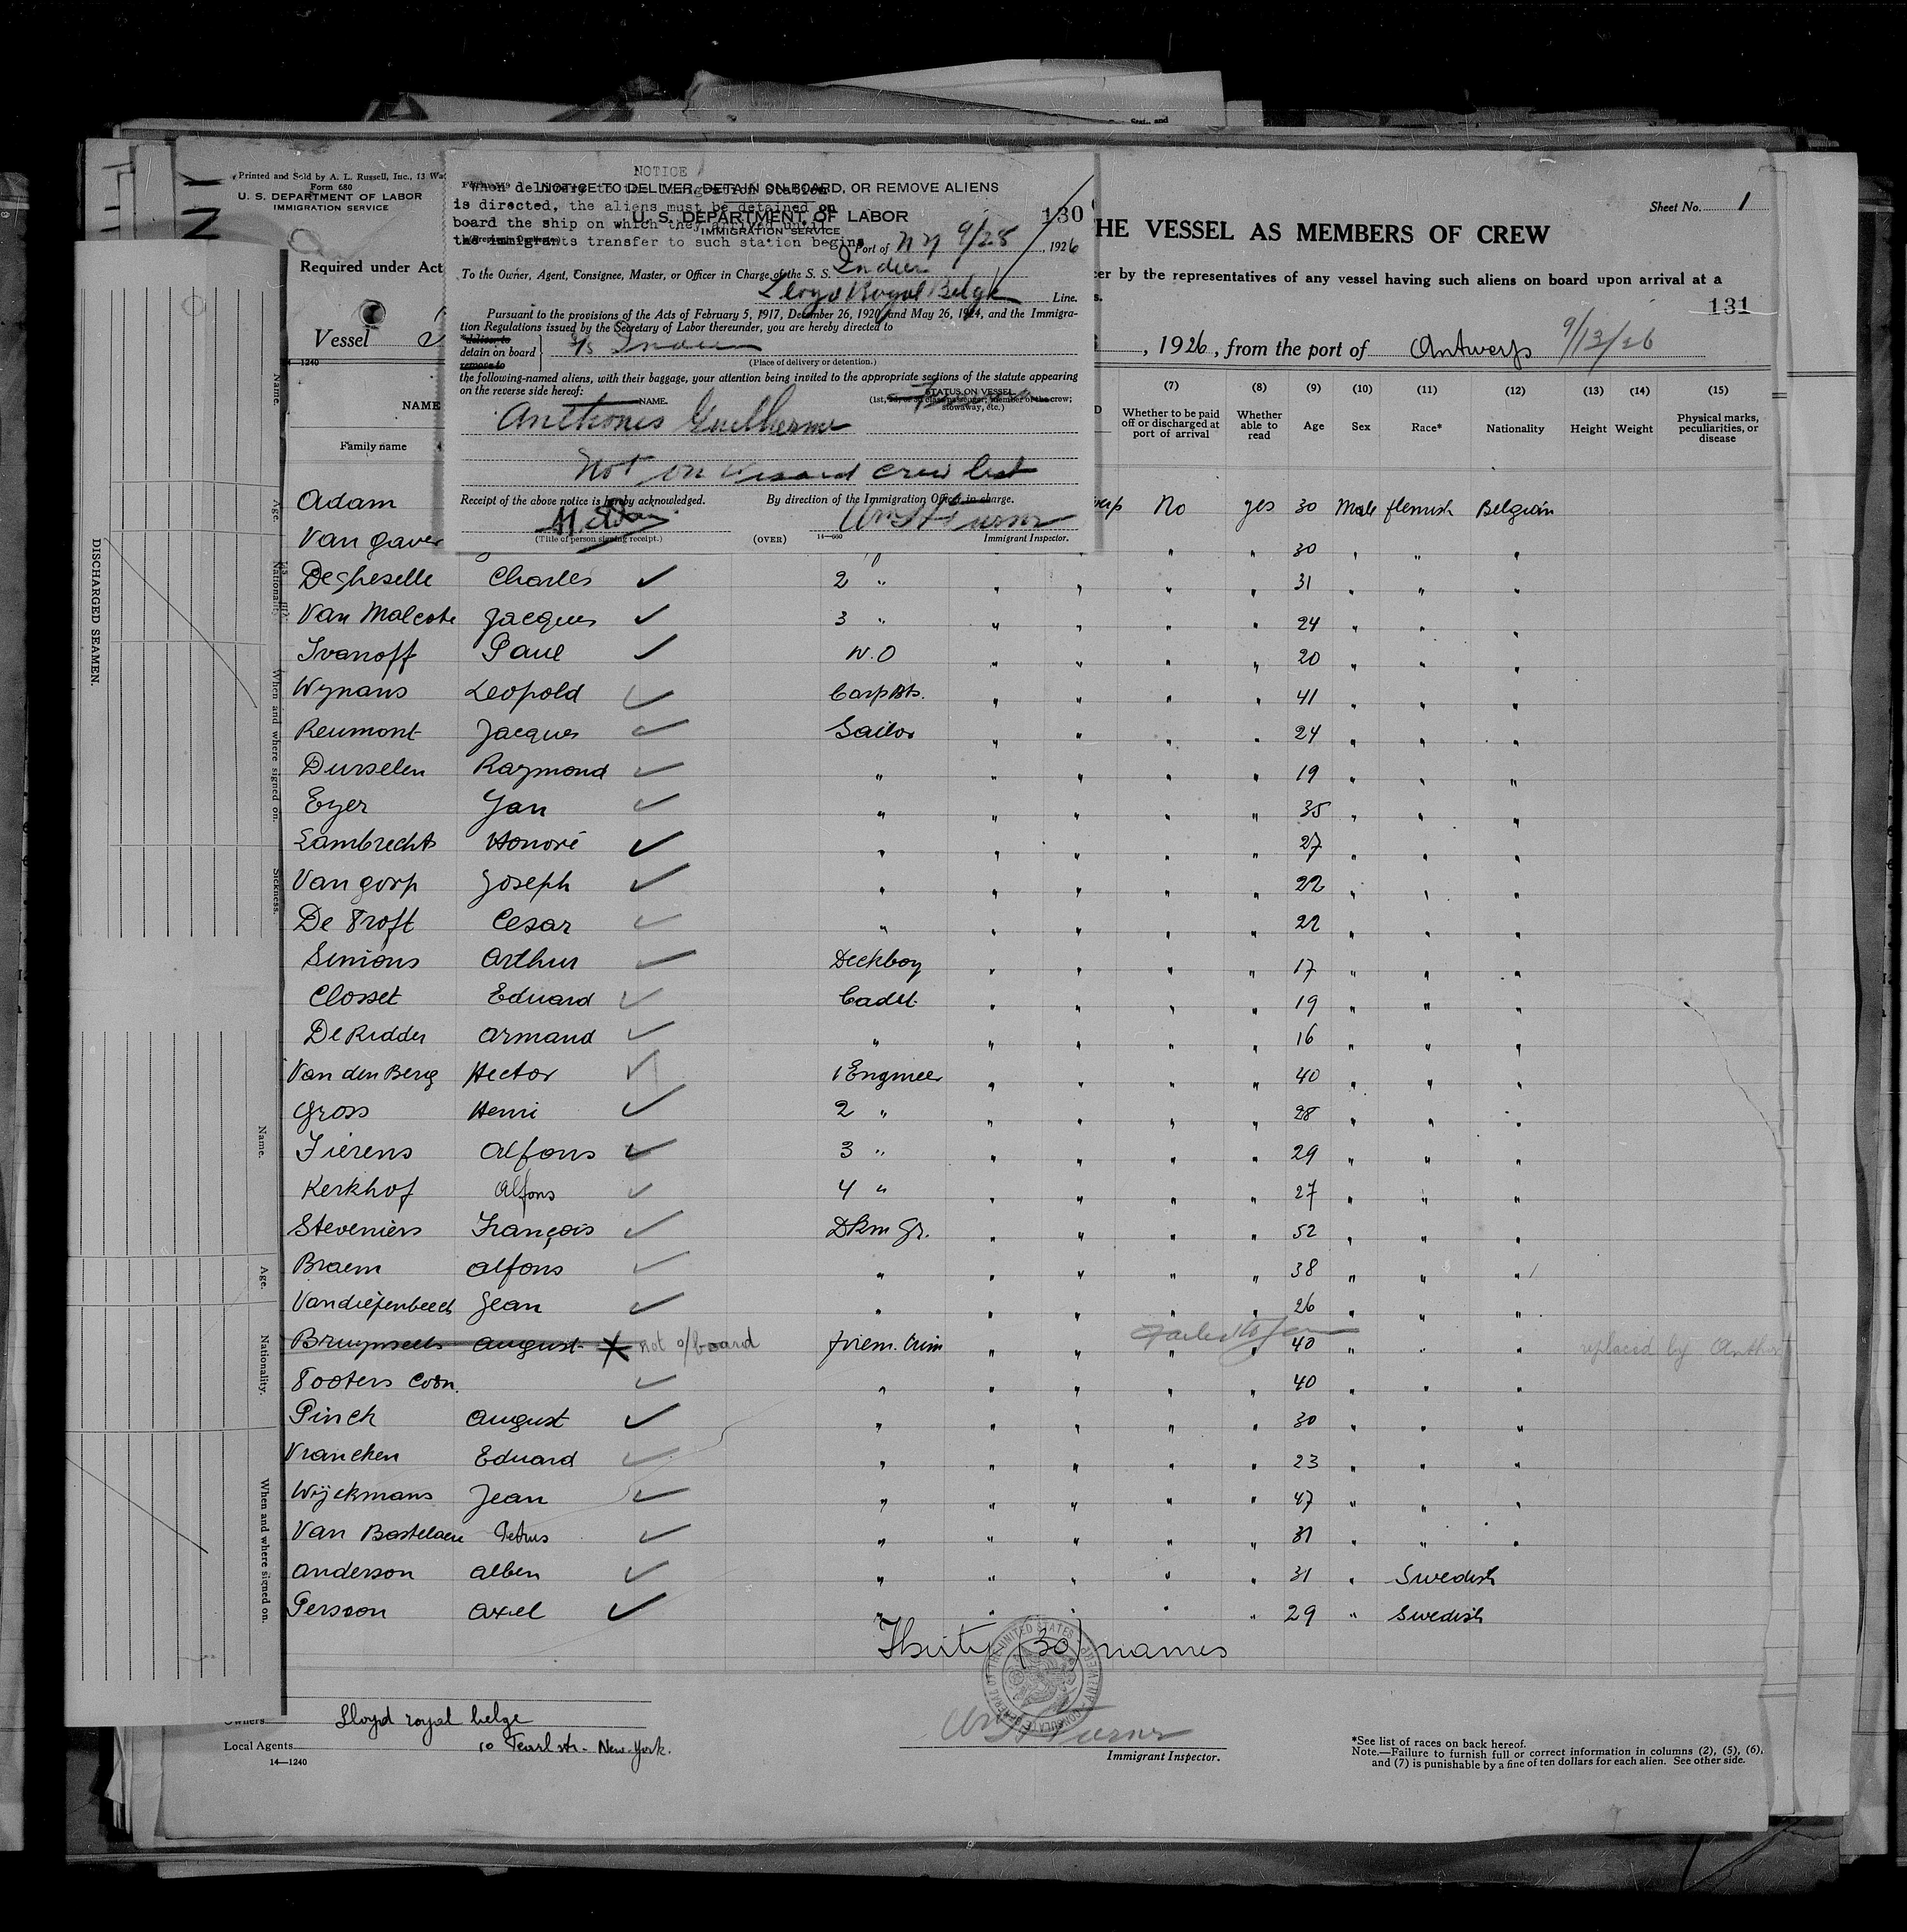 Printed and Sold by A. L. Russell, Inc., 13 Wa
Form 680
U. S. DEPARTMENT OF LABOR
IMMIGRATION SERVICE
Required under Act
Vessel
14—1240
NAME
Family name
NOTICE
When delivery to the Immigration Station
is directed, the aliens must be detained on
board the ship on which they arrived until
the immigrants transfer to such station begins
NOTICE TO DELIVER, DETAIN ON BOARD, OR REMOVE ALIENS
U. S. DEPARTMENT OF LABOR
IMMIGRATION SERVICE
130
Port of N Y 9/28, 1926
To the Owner, Agent, Consignee, Master, or Officer in Charge of the S. S. Indier
Lloyd Royal Belge Line.
Pursuant to the provisions of the Acts of February 5, 1917, December 26, 1920, and May 26, 1924, and the Immigra-
tion Regulations issued by the Secretary of Labor thereunder, you are hereby directed to
deliver to
detain on board
remove to
S/S Indier
(Place of delivery or detention.)
the following-named aliens, with their baggage, your attention being invited to the appropriate sections of the statute appearing
on the reverse side hereof:
NAME.
STATUS ON VESSEL
(1st, 2d, or 3d class passenger; member of the crew;
stowaway, etc.)
Anthonis Guilherme
Not on visaed crew list
Receipt of the above notice is hereby acknowledged.
By direction of the Immigration Officer in charge.
Wm H Turner
(Title of person signing receipt.)
(OVER)
14—660
Immigrant Inspector.
Sheet No. 1
HE VESSEL AS MEMBERS OF CREW
cer by the representatives of any vessel having such aliens on board upon arrival at a
131
, 1926, from the port of Antwerp 9/13/26
(7) (8) (9) (10) (11) (12) (13) (14) (15)
Whether to be paid off or discharged at port of arrival
Whether able to read
Age
Sex
Race*
Nationality
Height
Weight
Physical marks, peculiarities, or disease
Adam werp No yes 30 Male flemish Belgian
Van gaver " " 30 " " "
Degheselle Charles ✓ 2 " " " " " 31 " " "
Van Malcote Jacques ✓ 3 " " " " " 24 " " "
Ivanoff Paul ✓ W.O " " " " 20 " " "
Wynans Leopold ✓ " " " " 41 " " "
Reumont Jacques ✓ Sailor " " " " 24 " " "
Durselen Raymond ✓ " " " " " 19 " " "
Eyer Jan ✓ " " " " " 35 " " "
Lambrechts Honoré ✓ " " " " " 27 " " "
Van gorp Joseph ✓ " " " " " 22 " " "
De Troft Cesar ✓ " " " " " 22 " " "
Simons Arthur ✓ Deckboy " " " " 17 " " "
Closset Eduard ✓ Cadet " " " " 19 " " "
De Ridder Armand ✓ " " " " " 16 " " "
Van den Berg Hector ✓ 1 Engineer " " " " 40 " " "
Gross Henri ✓ 2 " " " " " 28 " " "
Fierens Alfons ✓ 3 " " " " " 29 " " "
Kerkhof Alfons ✓ 4 " " " " " 27 " " "
Steveniers François ✓ Dkm Gr. " " " " 52 " " "
Braem Alfons ✓ " " " " " 38 " " "
Vandiepenbeech Jean ✓ " " " " " 26 " " "
Bruynseels August not o/board firem. trim " " " " Failed to join 40 " " " replaced by Anthon
Tooters Corn. ✓ " " " " " 40 " " "
Pinck August ✓ " " " " " 30 " " "
Vrancken Eduard ✓ " " " " " 23 " " "
Wijckmans Jean ✓ " " " " " 47 " " "
Van Bastelaere Petrus ✓ " " " " " 31 " " "
Anderson Alben ✓ " " " " " 31 " Swedish
Persson Axel ✓ " " " " " 29 " Swedish
Thirty (30) names
Owners Lloyd royal belge
Local Agents 10 Pearl str. New-York.
14—1240
Wm H Turner
Immigrant Inspector.
*See list of races on back hereof.
Note.—Failure to furnish full or correct information in columns (2), (5), (6),
and (7) is punishable by a fine of ten dollars for each alien. See other side.
DISCHARGED SEAMEN.
Name.
Age.
Nationality.
When and where signed on.
Sickness.
Name.
Age.
Nationality.
When and where signed on.